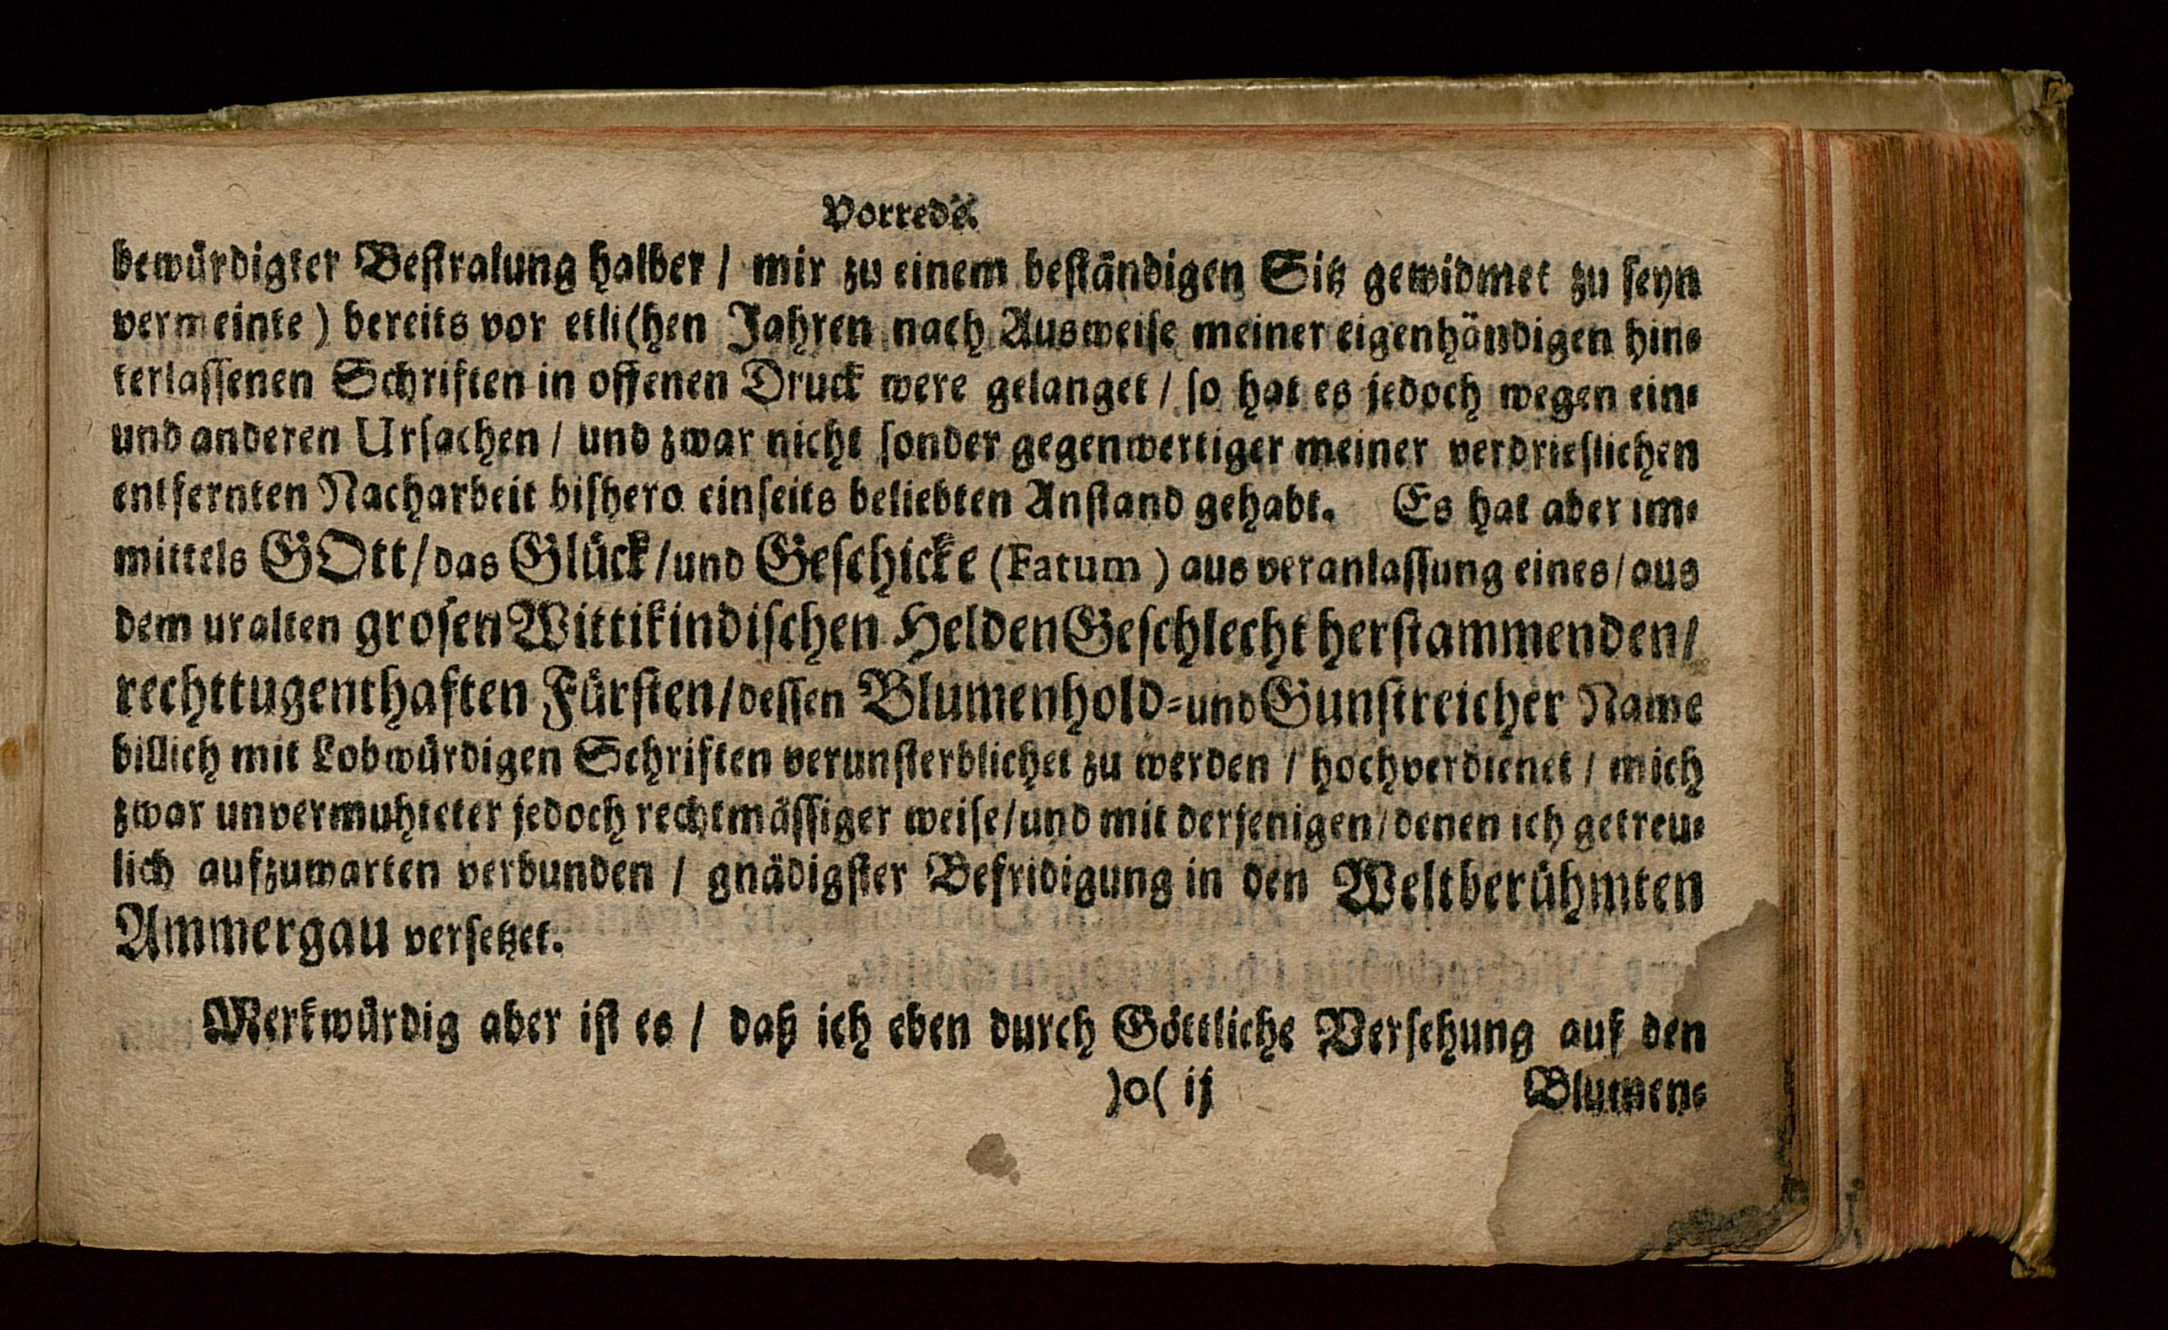 Vorrede.
bewürdigter Bestralung halber / mir zu einem beständigen Sitz gewidmet zu seyn
vermeinte) bereits vor etlichen Jahren nach Ausweise meiner eigenhändigen hin-
terlassenen Schriften in offenen Druck were gelanget / so hat es jedoch wegen ein-
und anderen Ursachen / und zwar nicht sonder gegenwertiger meiner verdrieslichen
entfernten Nacharbeit bishero einseits beliebten Anstand gehabt. Es hat aber im-
mittels GOtt/das Glück/und Geschicke (Fatum) aus veranlassung eines/aus
dem uralten grosen Wittikindischen HeldenGeschlecht herstammenden/
rechttugenthaften Fürsten/dessen Blumenhold-und Gunstreicher Name
billich mit Lobwürdigen Schriften verunsterblichet zu werden / hochverdienet / mich
zwar unvermuhteter jedoch rechtmässiger weise/und mit derjenigen/denen ich getreu-
lich aufzuwarten verbunden / gnädigster Befridigung in den Weltberühmten
Ammergau versetzet.
Merkwürdig aber ist es / daß ich eben durch Göttliche Versehung auf den
)o( ij Blumen-